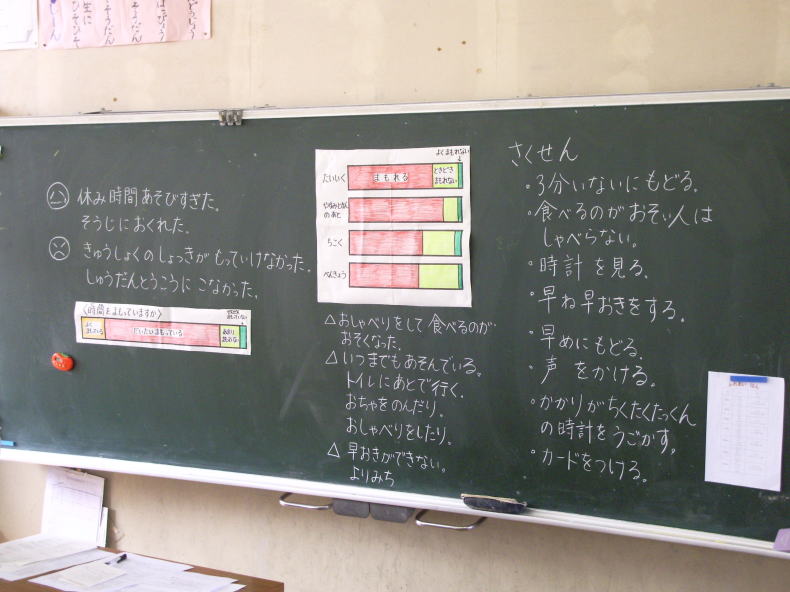 休み時間あそびすぎた。
そうじにおくれた。
きゅうしょくのしょっきがもっていけなかった。
しゅうだんとうこうにこなかった。
〈時間をまもっていますか〉
よく
だいたいまもっている
あまり
よくまもれない
たいいく
まもれる
ときどき
まもれない
のあと
ちこく
べんきょう
△おしゃべりをして食べるのが
おそくなった。
△いつまでもあそんでいる。
トイレにあとで行く。
おちゃをのんだり。
おしゃべりをしたり。
△早おきができない。
よりみち
さくせん
・3分いないにもどる。
・食べるのがおそい人は
しゃべらない。
・時計を見る。
・早ね早おきをする。
・早めにもどる。
・声をかける。
・かかりがちくたくたっくん
の時計をうごかす。
・カードをつける。